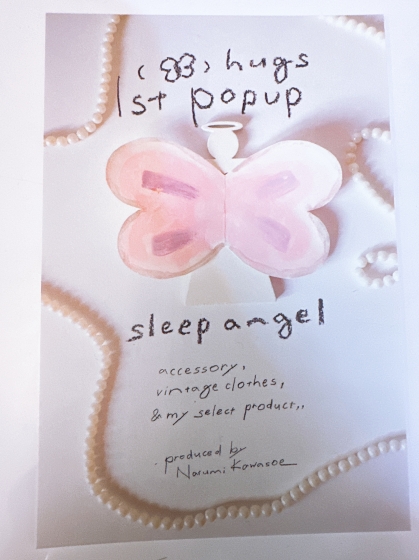 ( ꕤ ) hugs
1st popup
sleep angel
accessory,
vintage clothes,
& my select product,,
produced by
Narumi Kawasoe